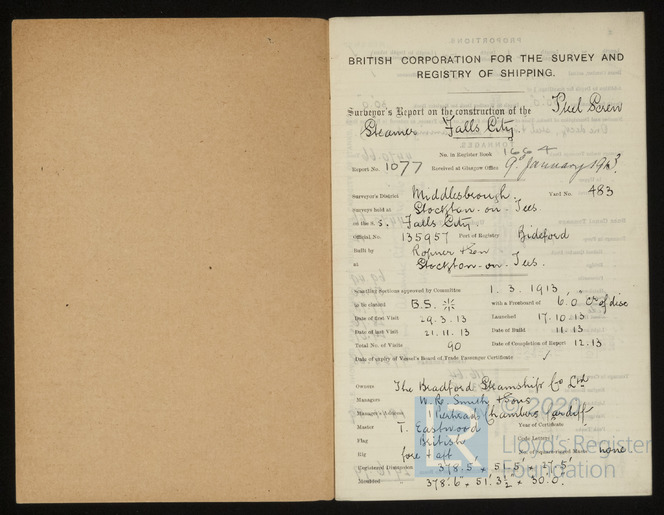 BRITISH CORPORATION FOR THE SURVEY AND
REGISTRY OF SHIPPING.
Surveyor's Report on the construction of the Steel Screw
Steamer Falls City.
No. in Register Book 1664
Report No. 1077 Received at Glasgow Office 9th January 1913
Surveyor's District Middlesbrough. Yard No. 483
Surveys held at Stockton-on-Tees.
on the S.S. Falls City
Official No. 135957 Port of Registry Bideford
Built by Ropner & Son
at Stockton-on-Tees.
Scantling Sections approved by Committee 1.3.1913
to be classed B.S. with a Freeboard of 6'.0" Cr of disc
Date of first Visit 29.3.13 Launched 17.10.13
Date of last Visit 21.11.13 Date of Build 11.13
Total No. of Visits 90 Date of Completion of Report 12.13
Date of expiry of Vessel's Board of Trade Passenger Certificate /
Owners The Bradford Steamship Co Ltd
Managers W. R. Smith & Sons
Manager's Address Pierhead Chambers Cardiff
Master T. Eastwood Year of Certificate
Flag British Code Letters
Rig fore & aft No. of Square-rigged Masts none.
Registered Dimensions 378.5' x 51.5' x 27.5'
Moulded 378'.6" x 51'.3½" x 30'.0".
© 2020
LR
Lloyd's Register
Foundation